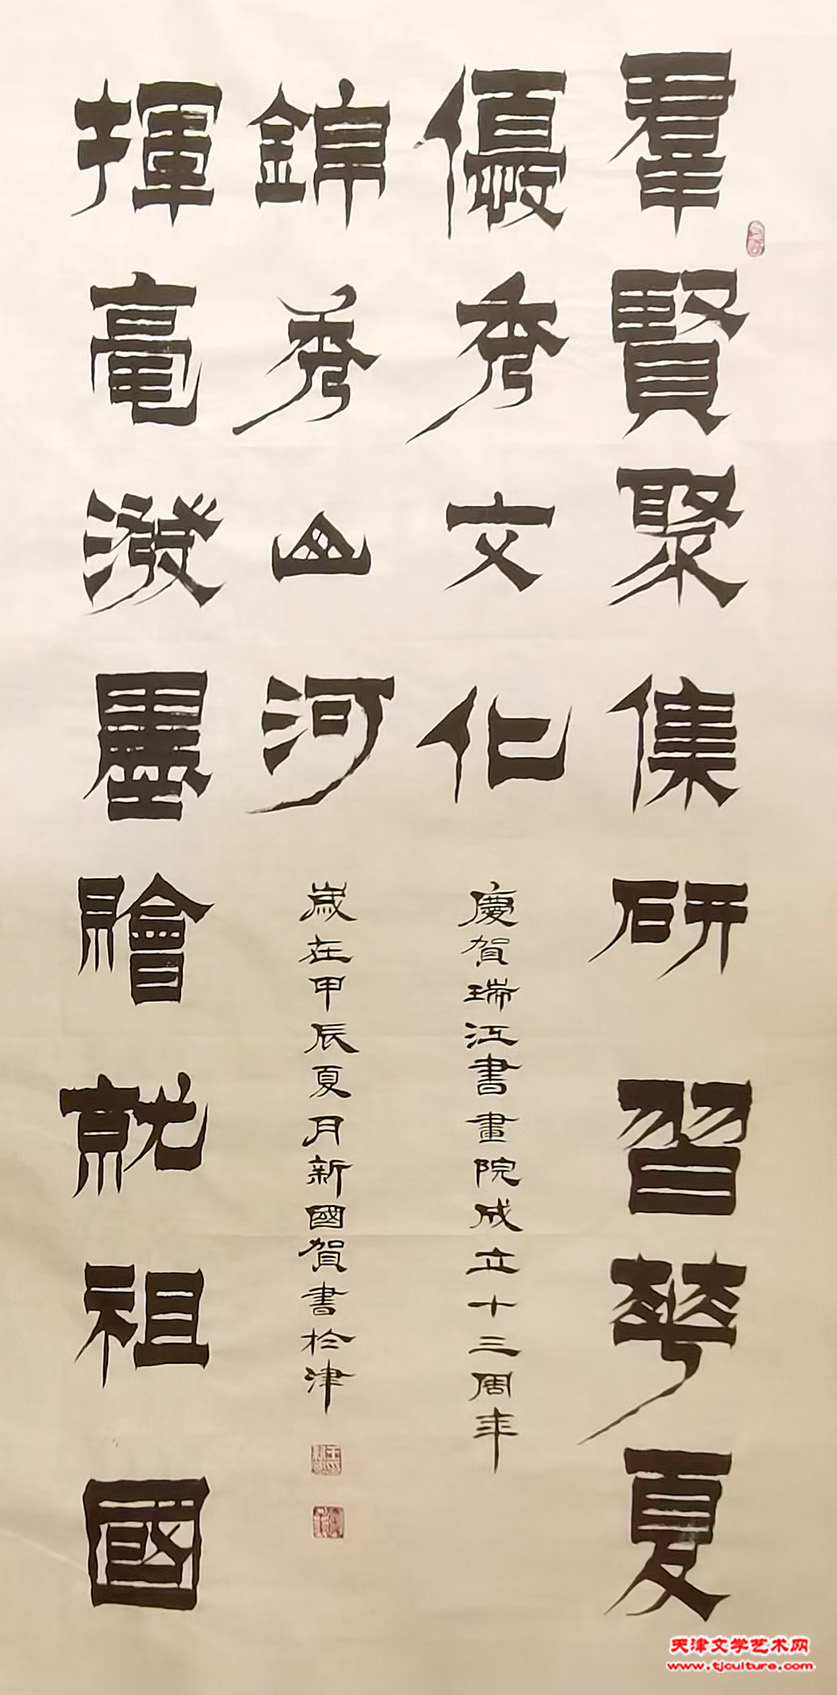 羣賢聚集研習華夏
優秀文化
揮毫潑墨膾就祖國
錦秀山河
慶賀瑞江書畫院成立十三周年
歲在甲辰夏月新國賀書於津
天津文学艺术网
www.tjculture.com